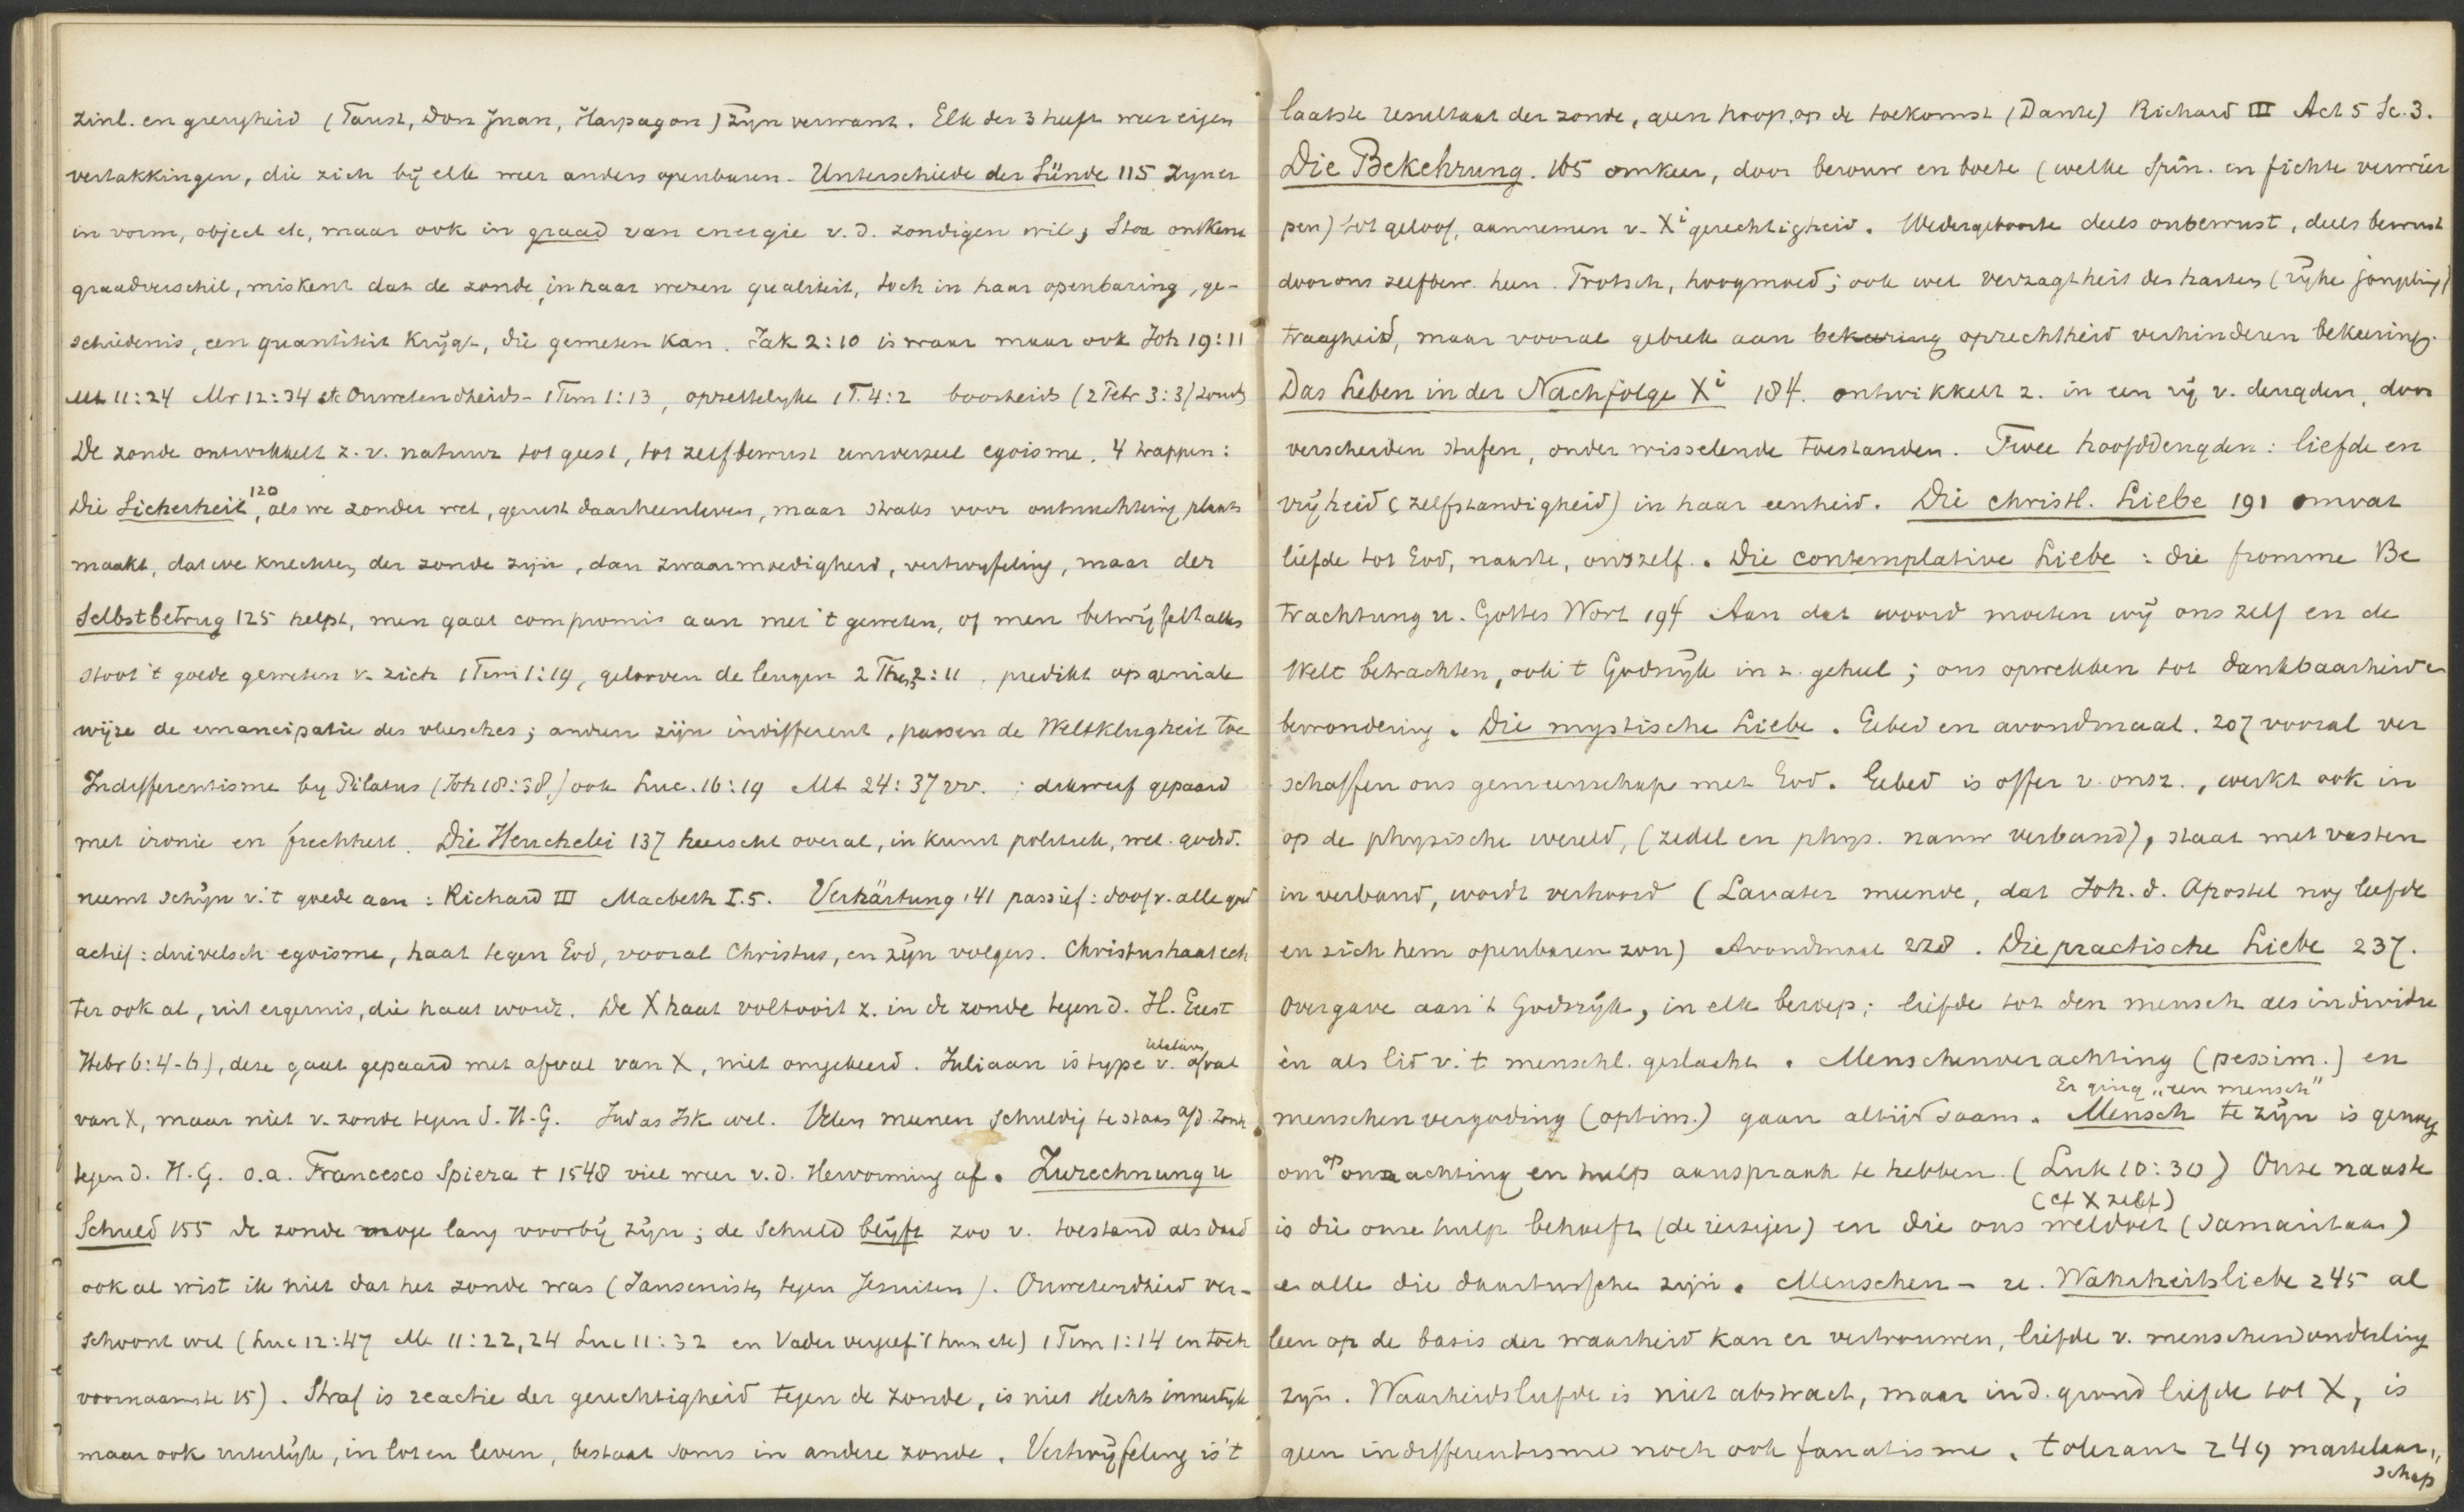 zinl. en gierigheid (Faust, Don Juan, Harpagon) zijn verwant. Elk der 3 heeft weer eigen
vertakkingen, die zich bij elk weer anders openbaren. Unterschiede der Sünde 115 zyn er
in vorm, object etc, maar ook in graad van energie v.d. zondigen wil; Stoa ontkent
graadverschil, miskent dat de zonde, in haar wezen qualiteit, toch in haar openbaring, ge-
schiedenis, een quantiteit krijgt, die gemeten kan. Jak 2:10 is waar maar ook Joh 19:11
Mt 11:24 Mr 12:34 etc Onwetendheids- 1 Tim 1:13, opzettelyke 1 T. 4:2 boosheids (2 Petr 3:3) zonds
De zonde ontwikkelt z. v. natuur tot geest, tot zelfbewust universeel egoisme. 4 trappen:
Die Sicherheit, 120 als we zonder wet, gerust daarheenleven, maar straks voor ontnuchtering plaats
maakt, dat we knechten der zonde zijn, dan zwaarmoedigheid, vertwyfeling, maar der
Selbstbetrug 125 helpt, men gaat compromis aan met 't geweten, of men betwijfelt alles
stoot 't goede geweten v. zich 1 Tim 1:19, gelooven de leugen 2 Thess 2:11, predikt op geniale
wijze de emancipatie des vleesches; andren zijn indifferent, passen de Weltklugheit toe
Indifferentisme by Pilatus (Joh 18:38,) ook Luc. 16:19 Mt 24:37 vv. ; dikwerf gepaard
met ironie en frechheit. Die Heuchelei 137 heerscht overal, in kunst politiek, wet. godsd.
neemt schijn v. 't goede aan: Richard III Macbeth I.5. Verhärtung 141 passief: doof v. alle goed
actief: duivelsch egoisme, haat tegen God, vooral Christus, en zijn volgers. Christushaat ech
ter ook al, uit ergernis, die haat wordt. De X haat voltooit z. in de zonde tegen d. H. Geest
Hebr 6:4-6), deze gaat gepaard met afval van X, niet omgekeerd. Juliaan is type v. afval
van X, maar niet v. zonde tegen d. H. G. Judas Isk wel. Velen meenen schuldig te staan a/d zonde
tegen d. H. G. o.a. Francesco Spiera † 1548 viel weer v.d. Hervorming af. Zurechnung u
Schuld 155 de zonde moge lang voorbij zijn; de schuld blijft zoo v. toestand als daad
ook al wist ik niet dat het zonde was (Jansenisten tegen Jesuiten). Onwetendheid ver-
schoont wel (Luc 12:47 Mt 11:22,24 Luc 11:32 en Vader vergeef 't hun etc) 1 Tim 1:14 en toch
voornaamste 15). Straf is reactie der gerechtigheid tegen de zonde, is niet slechts innerlijk
maar ook uiterlijk, in lot en leven, bestaat soms in andere zonde. Vertwijfeling is 't
laatste resultaat der zonde, geen hoop op de toekomst (Dante) Richard III Act 5 Sc. 3.
Die Bekehrung. 165 omkeer, door berouw en boete (welke Spin. en Fichte verwier
pen) tot geloof, aannemen v. Xi gerechtigheid. Wedergeboorte deels onbewust, deels bewust
door ons zelfbew. heen. Trotsch, hoogmoed; ook wel verzagtheit des harten (rijke jongeling)
traagheid, maar vooral gebrek aan bekeering oprechtheid verhinderen bekeering.
Das Leben in der Nachfolge Xi 184. ontwikkelt z. in een rij v. deugden, door
verscheiden stufen, onder wisselende toestanden. Twee hoofddeugden: liefde en
vrijheid (zelfstandigheid) in haar eenheid. Die christl. Liebe 191 omvat
liefde tot God, naaste, onszelf. Die contemplative Liebe: die fromme Be
trachtung u. Gottes Wort 194 Aan dat woord moeten wij ons zelf en de
Welt betrachten, ook 't Godsrijk in z. geheel; ons opwekken tot dankbaarheid en
bewondering. Die mystische Liebe. Gebed en avondmaal. 207 vooral ver
schaffen ons gemeenschap met God. Gebed is offer v. onsz., werkt ook in
op de physische wereld, (zedel en phys. nauw verband), staat met vasten
in verband, wordt verhoord (Lavater meende, dat Joh. d. Apostel nog leefde
en zich hem openbaren zou) Avondmaal 228. Die practische Liebe 237.
Overgave aan 't Godsrijk, in elk beroep; liefde tot den mensch als individu
èn als lid v. 't menschl. geslacht. Menschenverachting (pessim.) en
Er ging „een mensch"
menschenvergoding (optim.) gaan altijd saam. Mensch te zijn is genoeg
om op onze achting en hulp aanspraak te hebben. (Luk 10:30) Onze naaste
(cf X zelf)
is die onze hulp behoeft (de reiziger) en die ons weldoet (Samaritaan)
en alle die daartusschen zijn. Menschen- u. Wahrheitsliebe 245 al
leen op de basis der waarheid kan er vertrouwen, liefde v. menschen onderling
zijn. Waarheidsliefde is niet abstract, maar in d. grond liefde tot X, is
geen indifferentisme noch ook fanatisme. tolerant 249 martelaar„
schap